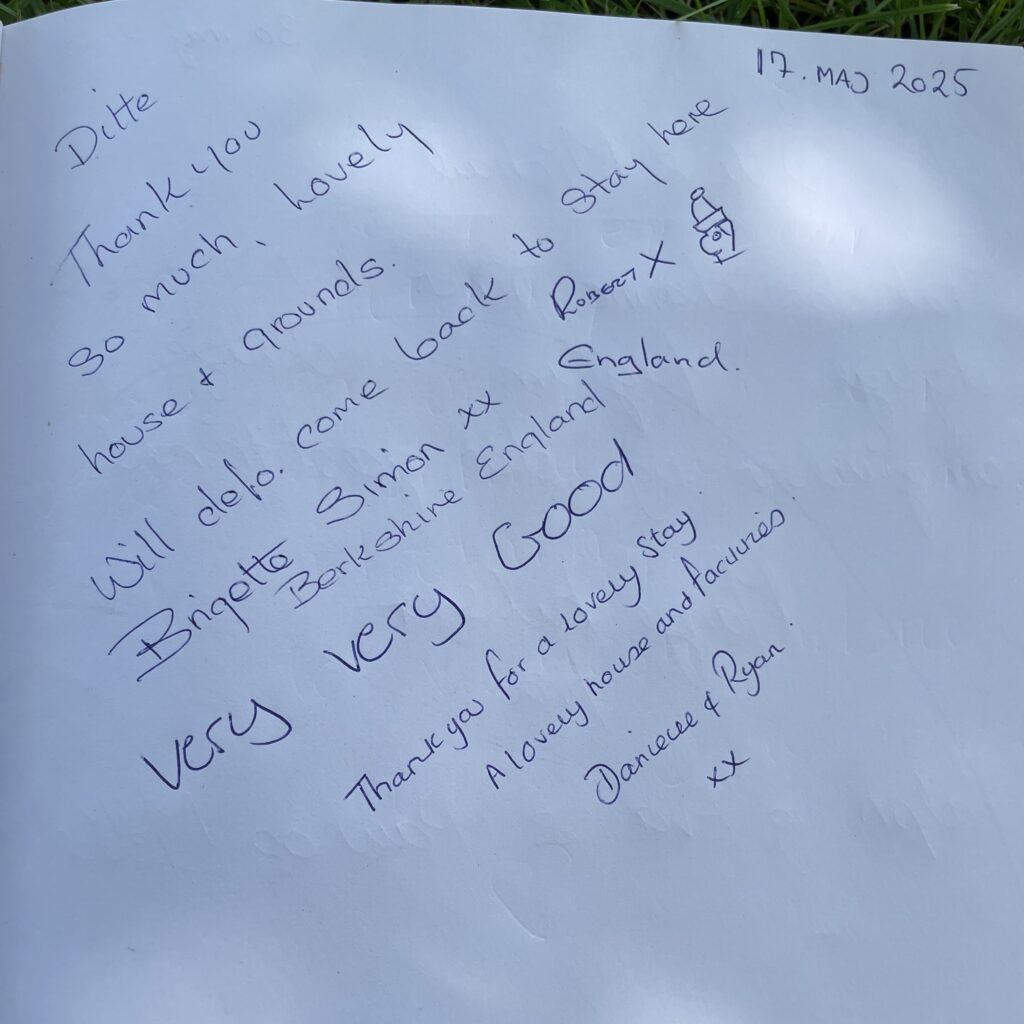 17. MAJ 2025
Ditte
Thank you
so much, Lovely
house & grounds.
Will defo. come back to stay here
Brigette Simon xx
Berkshire England
Robert X
England.
very very Good
Thank you for a lovely stay
A lovely house and facilities
Danielle & Ryan.
xx